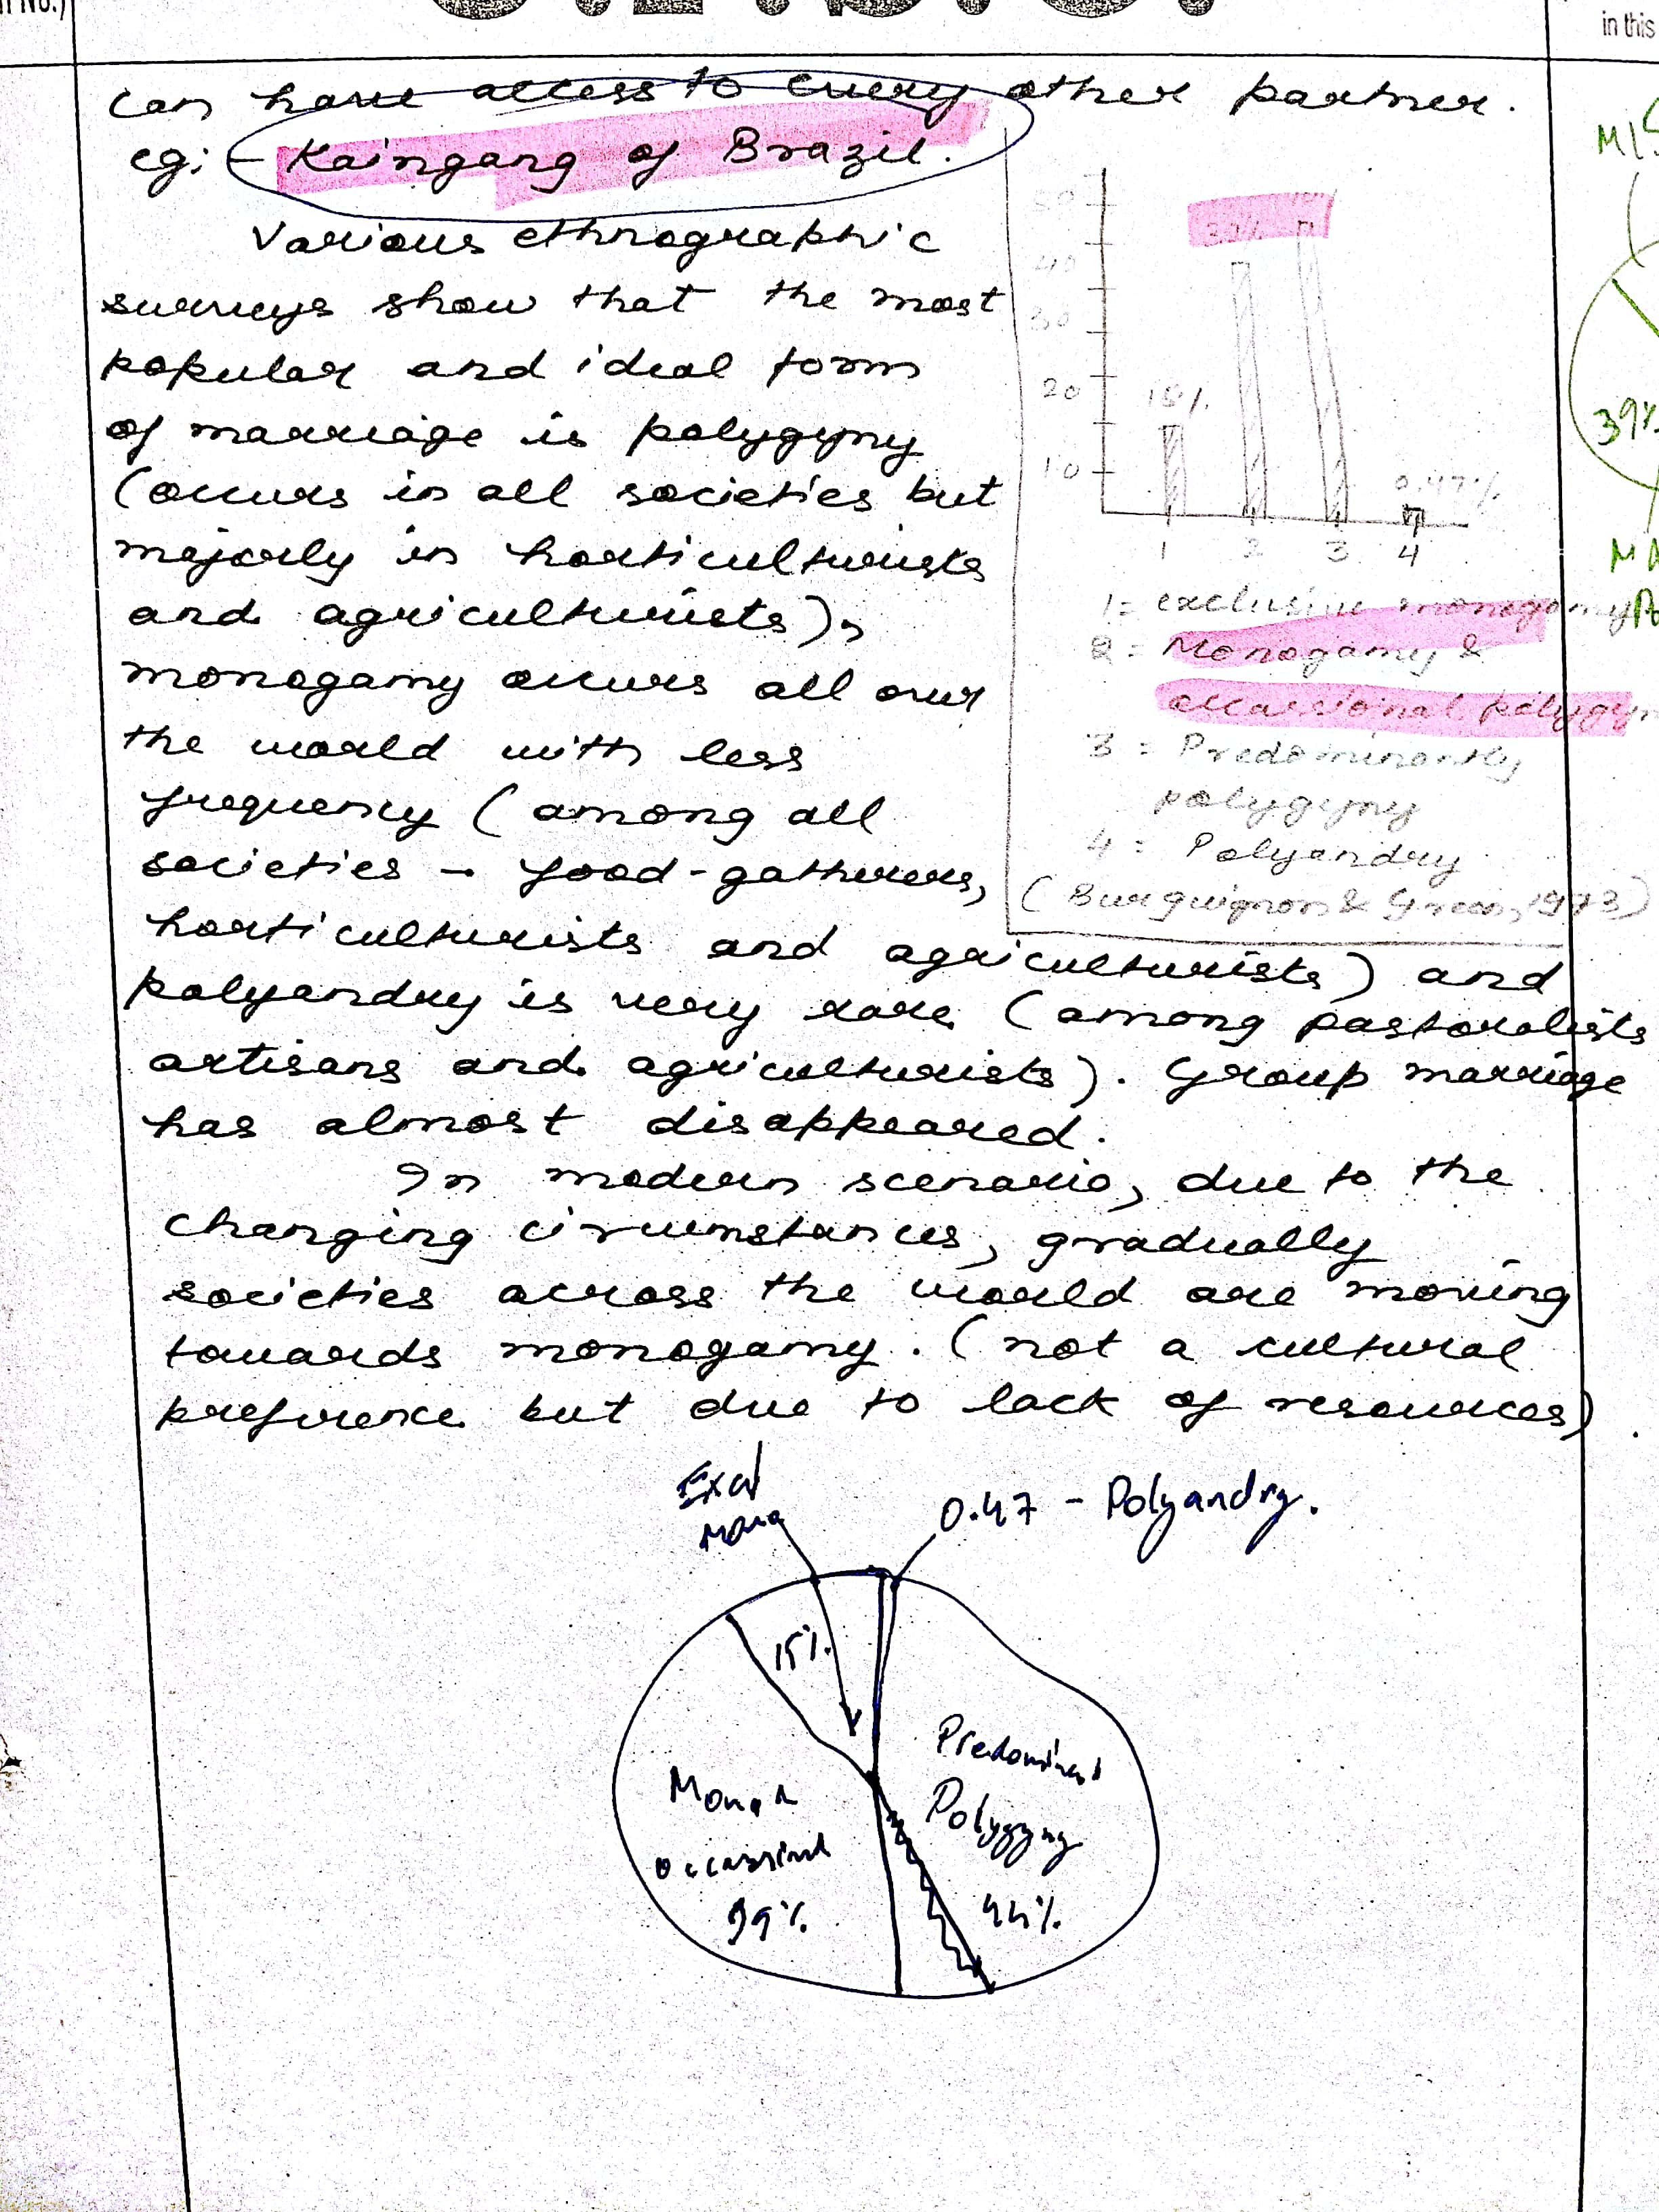 n No.)
in this
can have access to every other partner.
eg:- Kaingang of Brazil.
Various ethnographic
surveys show that the most
popular and ideal form
of marriage is polygyny
(occurs in all societies but
majorly in horticulturists
and agriculturists),
monogamy occurs all over
the world with less
frequency (among all
societies - food-gatherers,
horticulturists and agriculturists) and
polyandry is very rare (among pastoralists
artisans and agriculturists). Group marriage
has almost disappeared.
In modern scenario, due to the
changing circumstances, gradually
societies across the world are moving
towards monogamy. (not a cultural
preference but due to lack of resources).
50
40
30
20
10
39%
15%
0.47%
1 2 3 4
1= exclusive monogamy
2= Monogamy &
occassional polygyn
3 = Predominantly
polygyny
4 = Polyandry
(Burguignon & Green, 1973)
39%
Excl
Mono
0.47 - Polyandry.
15%
Predominant
Polygyny
44%
occassional
39%